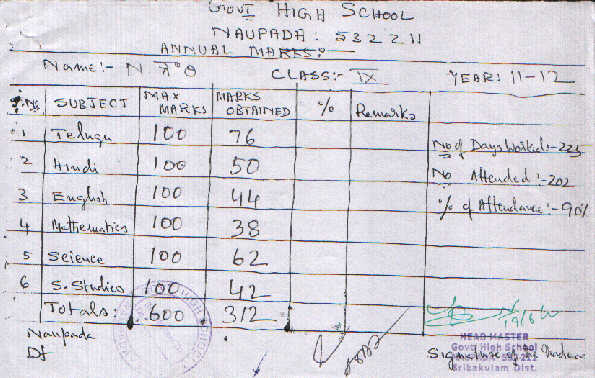 GOVT HIGH SCHOOL
NAUPADA. 532211
ANNUAL MARKS:
Name:- N CLASS:- IX YEAR: 11-12
S.No SUBJECT MAX MARKS MARKS OBTAINED % Remarks
1 Telugu 100 76 No of Days Worked:-223
2 Hindi 100 50 No Attended:-202
3 English 100 44 % of Attendance:-90%
4 Mathematics 100 38
5 Science 100 62
6 S. Studies 100 42
Totals: 600 312
Naupada
Dt
HEAD MASTER
Govt High School
Srikakulam Dist.
Signature of the